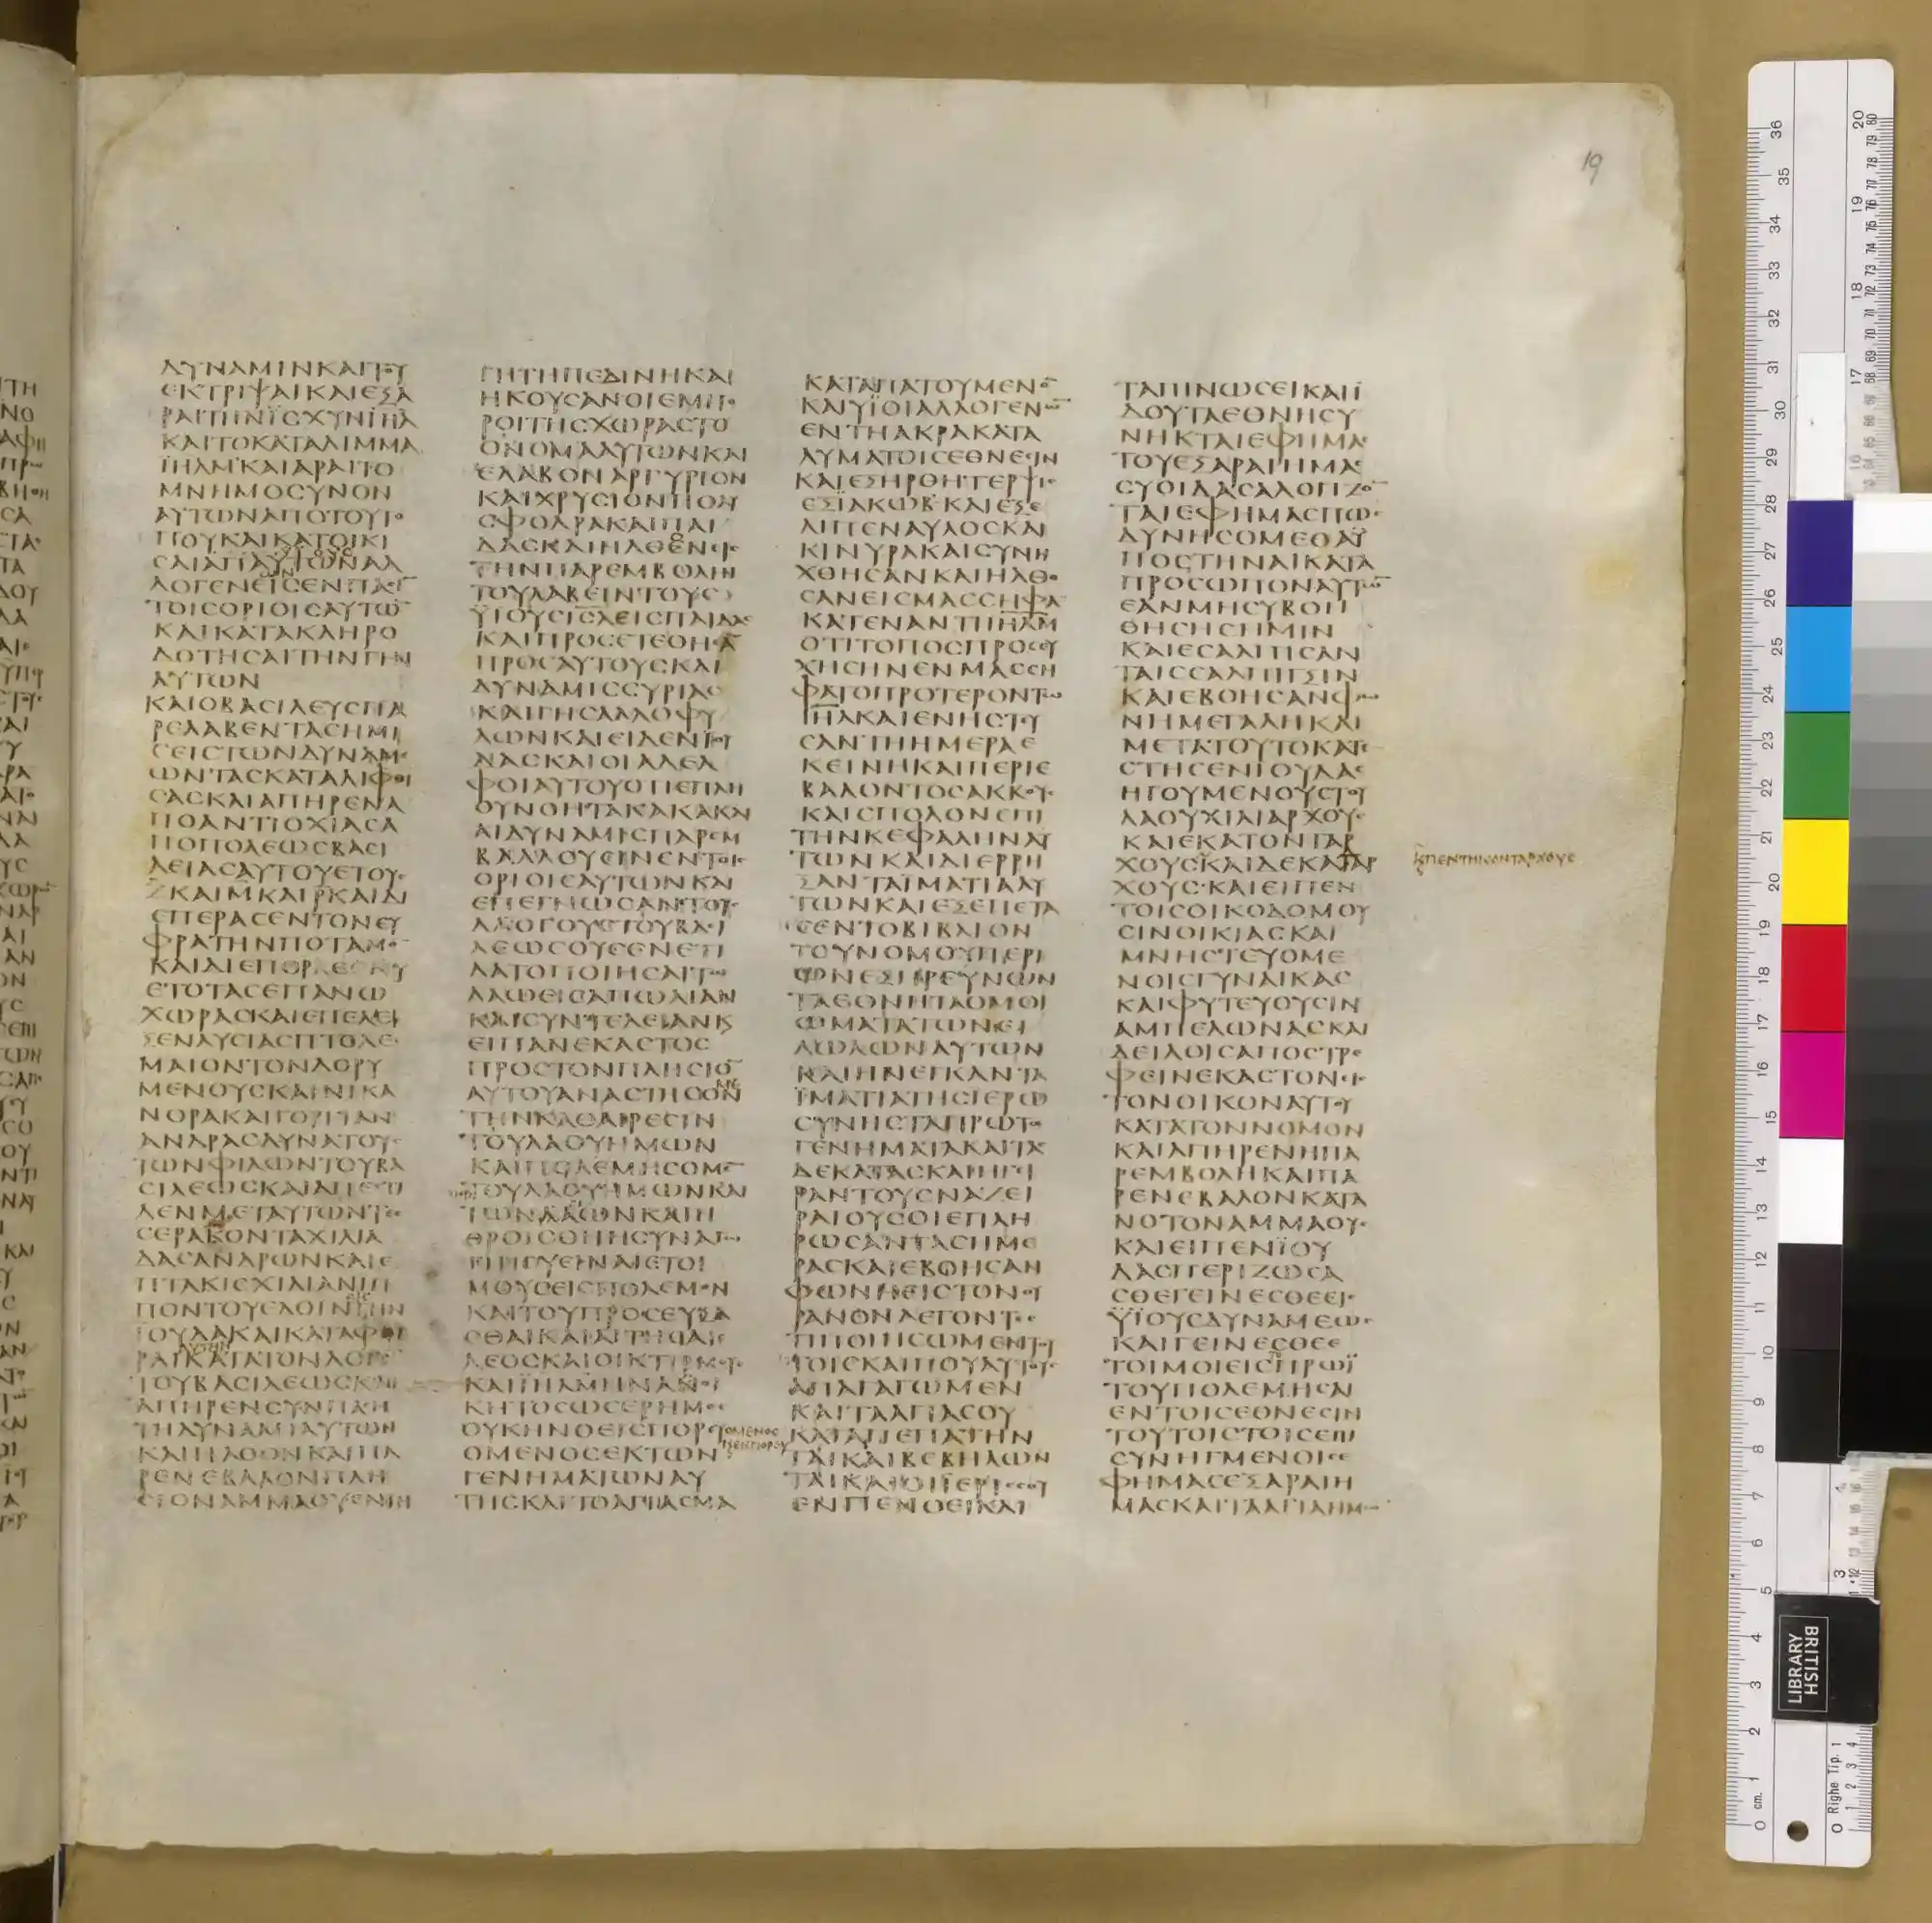 ΔΥΝΑΜΙΝΚΑΙΤΟΥ
ΕΚΤΡΙΨΑΙΚΑΙΕΞΑ
ΡΑΙΤΗΝΙΣΧΥΝΙΗΛ
ΚΑΙΤΟΚΑΤΑΛΙΜΜΑ
ΙΗΛΜΚΑΙΑΡΑΙΤΟ
ΜΝΗΜΟСΥΝΟΝ
ΑΥΤΩΝΑΠΟΤΟΥΤΟ
ΠΟΥΚΑΙΚΑΤΟΙΚΙ
ΛΟΓΕΝΕΙСΕΝΠΑСΙ
ΤΟΙСΟΡΙΟΙСΑΥΤΩ
ΚΑΙΚΑΤΑΚΛΗΡΟ
ΔΟΤΗСΑΙΤΗΝΓΗΝ
ΑΥΤΩΝ
ΚΑΙΟΒΑСΙΛΕΥСΠΑ
ΡΕΛΑΒΕΝΤΑСΗΜΙ
СΕΙСΤΩΝΔΥΝΑΜΕ
ΩΝΤΑСΚΑΤΑΛΙΦΘΙ
СΑСΚΑΙΑΠΗΡΕΝΑ
ΠΟΑΝΤΙΟΧΙΑСΑ
ΠΟΠΟΛΕΩСΒΑСΙ
ΛΕΙΑСΑΥΤΟΥΕΤΟΥС
Ζ ΚΑΙΜΚΑΙΡΚΑΙΔΙ
ΕΠΕΡΑСΕΝΤΟΝΕΥ
ΦΡΑΤΗΝΠΟΤΑΜΟ
ΚΑΙΔΙΕΠΟΡΕΥΕΤΟ
ΧΩΡΑСΚΑΙΕΠΕΛΕ
ΞΕΝΛΥСΙΑСΠΤΟΛΕ
ΜΑΙΟΝΤΟΝΔΟΡΥ
ΜΕΝΟΥСΚΑΙΝΙΚΑ
ΝΟΡΑΚΑΙΓΟΡΓΙΑΝ
ΑΝΔΡΑСΔΥΝΑΤΟΥС
ΤΩΝΦΙΛΩΝΤΟΥΒΑ
СΙΛΕΩСΚΑΙΑΠΕСΤΙ
ΛΕΝΜΕΤΑΥΤΩΝΤΕС
СΕΡΑΚΟΝΤΑΧΙΛΙΑ
ΔΑСΑΝΔΡΩΝΚΑΙΕ
ΠΤΑΚΙСΧΙΛΙΑΝΙΠ
ΠΟΝΤΟΥΕΛΘΙΝΕΙСΓΗΝ
ΙΟΥΔΑΚΑΙΚΑΤΑΦΘΙ
ΡΑΙΚΑΤΑΤΟΝΛΟΓΟ
ΤΟΥΒΑСΙΛΕΩСΚΑΙ
ΑΠΗΡΕΝСΥΝΠΑСΗ
ΤΗΔΥΝΑΜΙΑΥΤΩΝ
ΚΑΙΗΛΘΟΝΚΑΙΠΑ
ΡΕΝΕΒΑΛΟΝΠΛΗ
СΙΟΝΑΜΜΑΟΥΕΝΤΗ
ΓΗΤΗΠΕΔΙΝΗΚΑΙ
ΗΚΟΥСΑΝΟΙΕΜΠΟ
ΡΟΙΤΗСΧΩΡΑСΤΟ
ΟΝΟΜΑΑΥΤΩΝΚΑΙ
ΕΛΑΒΟΝΑΡΓΥΡΙΟΝ
ΚΑΙΧΡΥСΙΟΝΠΟΛΥ
СΦΟΔΡΑΚΑΙΠΑΙ
ΔΑСΚΑΙΗΛΘΟΝΕΙС
ΤΗΝΠΑΡΕΜΒΟΛΗΝ
ΤΟΥΛΑΒΕΙΝΤΟΥС
ΥΙΟΥСΙСΛΕΙСΠΑΙΔΑС
ΚΑΙΠΡΟСΕΤΕΘΗСΑ
ΠΡΟСΑΥΤΟΥСΚΑΙ
ΔΥΝΑΜΙССΥΡΙΑС
ΚΑΙΓΗСΑΛΛΟΦΥ
ΛΩΝΚΑΙΕΙΔΕΝΙΟΥ
ΔΑСΚΑΙΟΙΑΔΕΛ
ΦΟΙΑΥΤΟΥΟΤΙΕΠΛΗ
ΘΥΝΘΗΤΑΚΑΚΑΚΑΙ
ΑΙΔΥΝΑΜΙСΠΑΡΕΜ
ΒΑΛΛΟΥСΙΝΕΝΤΟΙС
ΟΡΙΟΙСΑΥΤΩΝΚΑΙ
ΕΠΕΓΝΩСΑΝΤΟΥС
ΛΟΓΟΥСΤΟΥΒΑСΙ
ΛΕΩСΟΥСΕΝΕΤΙ
ΛΑΤΟΠΟΙΗСΑΙΤΩ
ΛΑΩΕΙСΑΠΩΛΙΑΝ
ΚΑΙСΥΝΤΕΛΕΙΑΝΚ
ΕΙΠΑΝΕΚΑСΤΟС
ΠΡΟСΤΟΝΠΛΗСΙΟ
ΑΥΤΟΥΑΝΑСΤΗСΟΝ
ΤΗΝΚΑΘΑΙΡΕСΙΝ
ΤΟΥΛΑΟΥΗΜΩΝ
ΚΑΙΠΟΛΕΜΗСΟΜΕ
ΤΟΥΛΑΟΥΗΜΩΝΚΑΙ
ΤΩΝΑΓΙΩΝΚΑΙΗ
ΘΡΟΙСΘΗΗСΥΝΑΓΩ
ΓΗΤΟΥΕΙΝΑΙΕΤΟΙ
ΜΟΥСΕΙСΠΟΛΕΜΟΝ
ΚΑΙΤΟΥΠΡΟСΕΥΞΑ
СΘΑΙΚΑΙΑΙΤΗСΑΙ
ΛΕΟСΚΑΙΟΙΚΤΙΡΜΟΥС
ΚΑΙΙΗΛΜΗΝΑΟΙ
ΚΗΤΟСΩСΕΡΗΜΟС
ΟΥΚΗΝΟΕΙСΠΟΡΕΥ
ΟΜΕΝΟСΕΚΤΩΝ
ΓΕΝΗΜΑΤΩΝΑΥ
ΤΗСΚΑΙΤΟΑΓΙΑСΜΑ
ΚΑΤΑΠΑΤΟΥΜΕΝΟ
ΚΑΙΥΙΟΙΑΛΛΟΓΕΝΩ
ΕΝΤΗΑΚΡΑΚΑΤΑ
ΛΥΜΑΤΟΙСΕΘΝΕСΙΝ
ΚΑΙΕΞΗΡΘΗΤΕΡΨΙС
ΕΞΙΑΚΩΒΚΑΙΕΞΕ
ΛΙΠΕΝΑΥΛΟСΚΑΙ
ΚΙΝΥΡΑΚΑΙСΥΝΗ
ΧΘΗСΑΝΚΑΙΗΛΘΟ
СΑΝΕΙСΜΑССΗΦΑ
ΚΑΤΕΝΑΝΤΙΙΗΛΜ
ΟΤΙΤΟΠΟСΠΡΟСΕΥ
ΧΗСΗΝΕΝΜΑССΗ
ΦΑΤΟΠΡΟΤΕΡΟΝΤΩ
ΙΗΛΚΑΙΕΝΗСΤΕΥ
СΑΝΤΗΗΜΕΡΑΕ
ΚΕΙΝΗΚΑΙΠΕΡΙΕ
ΒΑΛΟΝΤΟСΑΚΚΟΥС
ΚΑΙСΠΟΔΟΝΕΠΙ
ΤΗΝΚΕΦΑΛΗΝΑΥ
ΤΩΝΚΑΙΔΙΕΡΡΗ
ΞΑΝΤΑΙΜΑΤΙΑΑΥ
ΤΩΝΚΑΙΕΞΕΠΕΤΑ
СΕΝΤΟΒΙΒΛΙΟΝ
ΤΟΥΝΟΜΟΥΠΕΡΙ
ΩΝΕΞΗΡΕΥΝΩΝ
ΤΑΕΘΝΗΤΑΟΜΟΙ
ΩΜΑΤΑΤΩΝΕΙ
ΔΩΛΩΝΑΥΤΩΝ
ΚΑΙΗΝΕΓΚΑΝΤΑ
ΙΜΑΤΙΑΤΗСΙΕΡΩ
СΥΝΗСΤΑΠΡΩΤΟ
ΓΕΝΗΜΑΤΑΚΑΙΤΑ
ΔΕΚΑΤΑСΚΑΙΗΓΙ
ΡΑΝΤΟΥСΝΑΖΕΙ
ΡΑΙΟΥСΟΙΕΠΛΗ
ΡΩСΑΝΤΑСΗΜΕ
ΡΑСΚΑΙΕΒΟΗСΑΝ
ΦΩΝΗΕΙСΤΟΝΟΥ
ΡΑΝΟΝΛΕΓΟΝΤΕС
ΤΙΠΟΙΗСΩΜΕΝΤΟΥ
ΤΟΙСΚΑΙΠΟΥΑΥΤΟΥС
ΑΠΑΓΑΓΩΜΕΝ
ΚΑΙΤΑΑΓΙΑСΟΥ
ΚΑΤΑΠΕΠΑΤΗΝ
ΤΑΙΚΑΙΒΕΒΗΛΩΝ
ΤΑΙΚΑΙΟΙΙΕΡΙССΟΥ
ΕΝΠΕΝΘΕΙΚΑΙ
ΤΑΠΙΝΩСΕΙΚΑΙΙ
ΔΟΥΤΑΕΘΝΗСΥ
ΝΗΚΤΑΙΕΦΗΜΑС
ΤΟΥΕΞΑΡΑΙΗΜΑС
СΥΟΙΔΑСΑΛΟΓΙΖΟ
ΤΑΙΕΦΗΜΑСΠΩС
ΔΥΝΗСΟΜΕΘΑΥ
ΠΟСΤΗΝΑΙΚΑΤΑ
ΠΡΟСΩΠΟΝΑΥΤΩ
ΕΑΝΜΗСΥΒΟΗ
ΘΗСΗСΗΜΙΝ
ΚΑΙΕСΑΛΠΙСΑΝ
ΤΑΙССΑΛΠΙΓΞΙΝ
ΚΑΙΕΒΟΗСΑΝΦΩ
ΝΗΜΕΓΑΛΗΚΑΙ
ΜΕΤΑΤΟΥΤΟΚΑΤΕ
СΤΗСΕΝΙΟΥΔΑС
ΗΓΟΥΜΕΝΟΥСΤΟΥ
ΛΑΟΥΧΙΛΙΑΡΧΟΥС
ΚΑΙΕΚΑΤΟΝΤΑΡ
ΧΟΥСΚΑΙΔΕΚΑΤΑΡ
ΚΠΕΝΤΗΚΟΝΤΑΡΧΟΥС
ΧΟΥС·ΚΑΙΕΙΠΕΝ
ΤΟΙСΟΙΚΟΔΟΜΟΥ
СΙΝΟΙΚΙΑСΚΑΙ
ΜΝΗСΤΕΥΟΜΕ
ΝΟΙСΓΥΝΑΙΚΑС
ΚΑΙΦΥΤΕΥΟΥСΙΝ
ΑΜΠΕΛΩΝΑСΚΑΙ
ΔΕΙΛΟΙСΑΠΟСΤΡΕ
ΦΕΙΝΕΚΑСΤΟΝΕΙС
ΤΟΝΟΙΚΟΝΑΥΤΟΥ
ΚΑΤΑΤΟΝΝΟΜΟΝ
ΚΑΙΑΠΗΡΕΝΗΠΑ
ΡΕΜΒΟΛΗΚΑΙΠΑ
ΡΕΝΕΒΑΛΟΝΚΑΤΑ
ΝΟΤΟΝΑΜΜΑΟΥС
ΚΑΙΕΙΠΕΝΙΟΥ
ΔΑСΠΕΡΙΖΩСΑ
СΘΕΓΕΙΝΕСΘΕΕΙС
ΥΙΟΥСΔΥΝΑΜΕΩС
ΚΑΙΓΕΙΝΕСΘΕΕ
ΤΟΙΜΟΙΕΙСΠΡΩΙ
ΤΟΥΠΟΛΕΜΗСΑΙ
ΕΝΤΟΙСΕΘΝΕСΙΝ
ΤΟΥΤΟΙСΤΟΙСΕΠΙ
СΥΝΗΓΜΕΝΟΙСΕ
ΦΗΜΑСΕΞΑΡΑΙΗ
ΜΑСΚΑΙΤΑΑΓΙΑΗΜΩ
19
BRITISH
LIBRARY